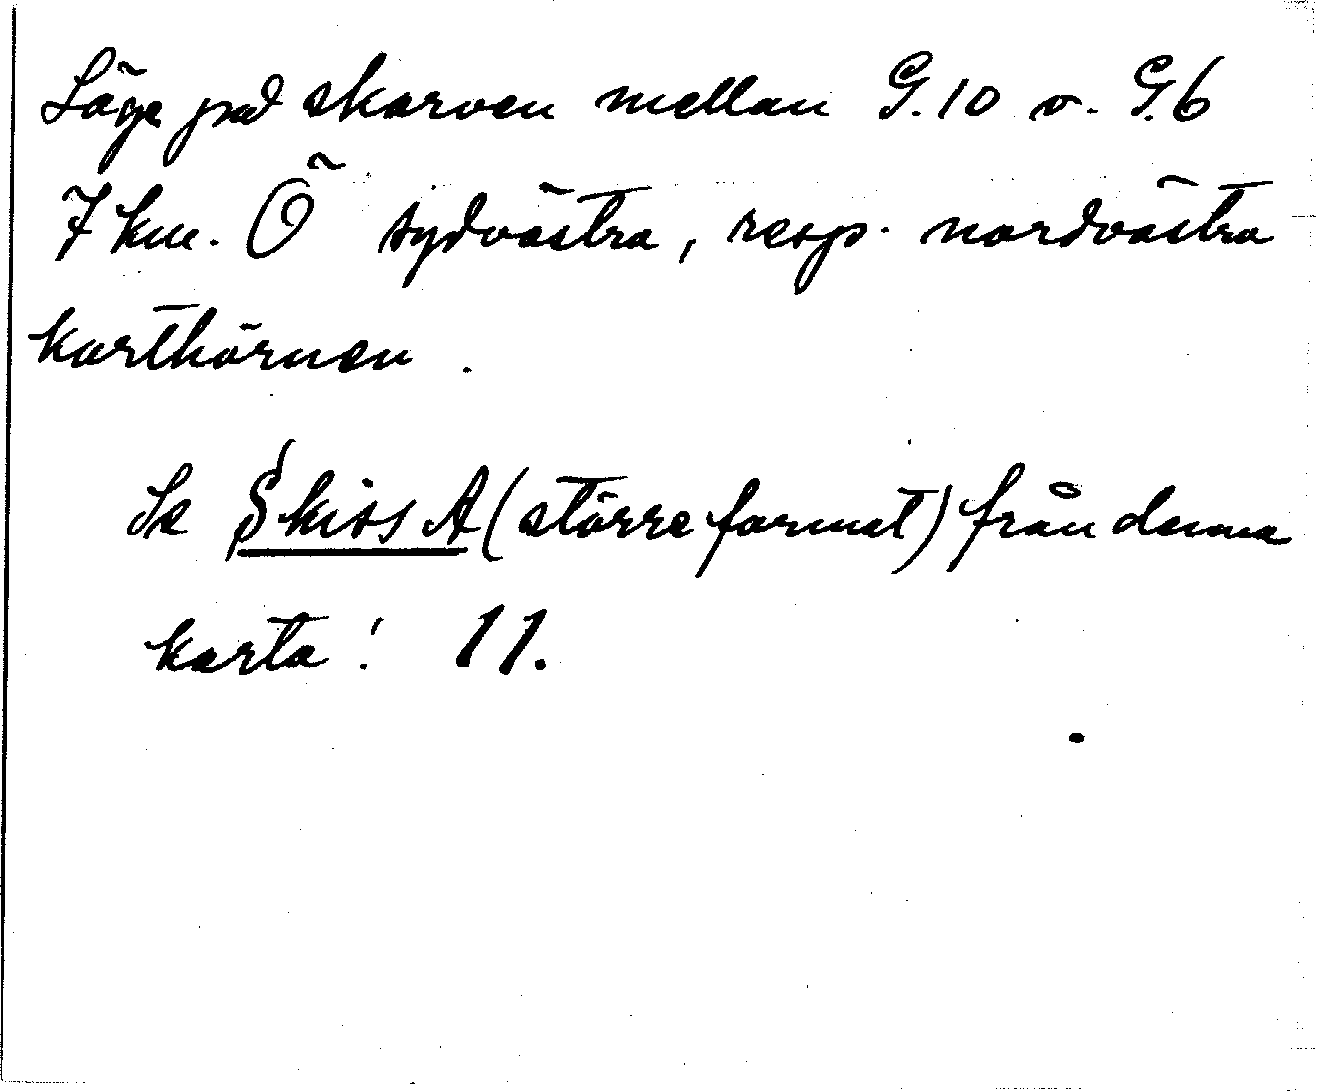 Läge på skarven mellan G.10 o. G.6
7 km. Ö sydvästra, resp. nordvästra
karthörnen.
Se Skiss A (större format) från denna
karta! 11.